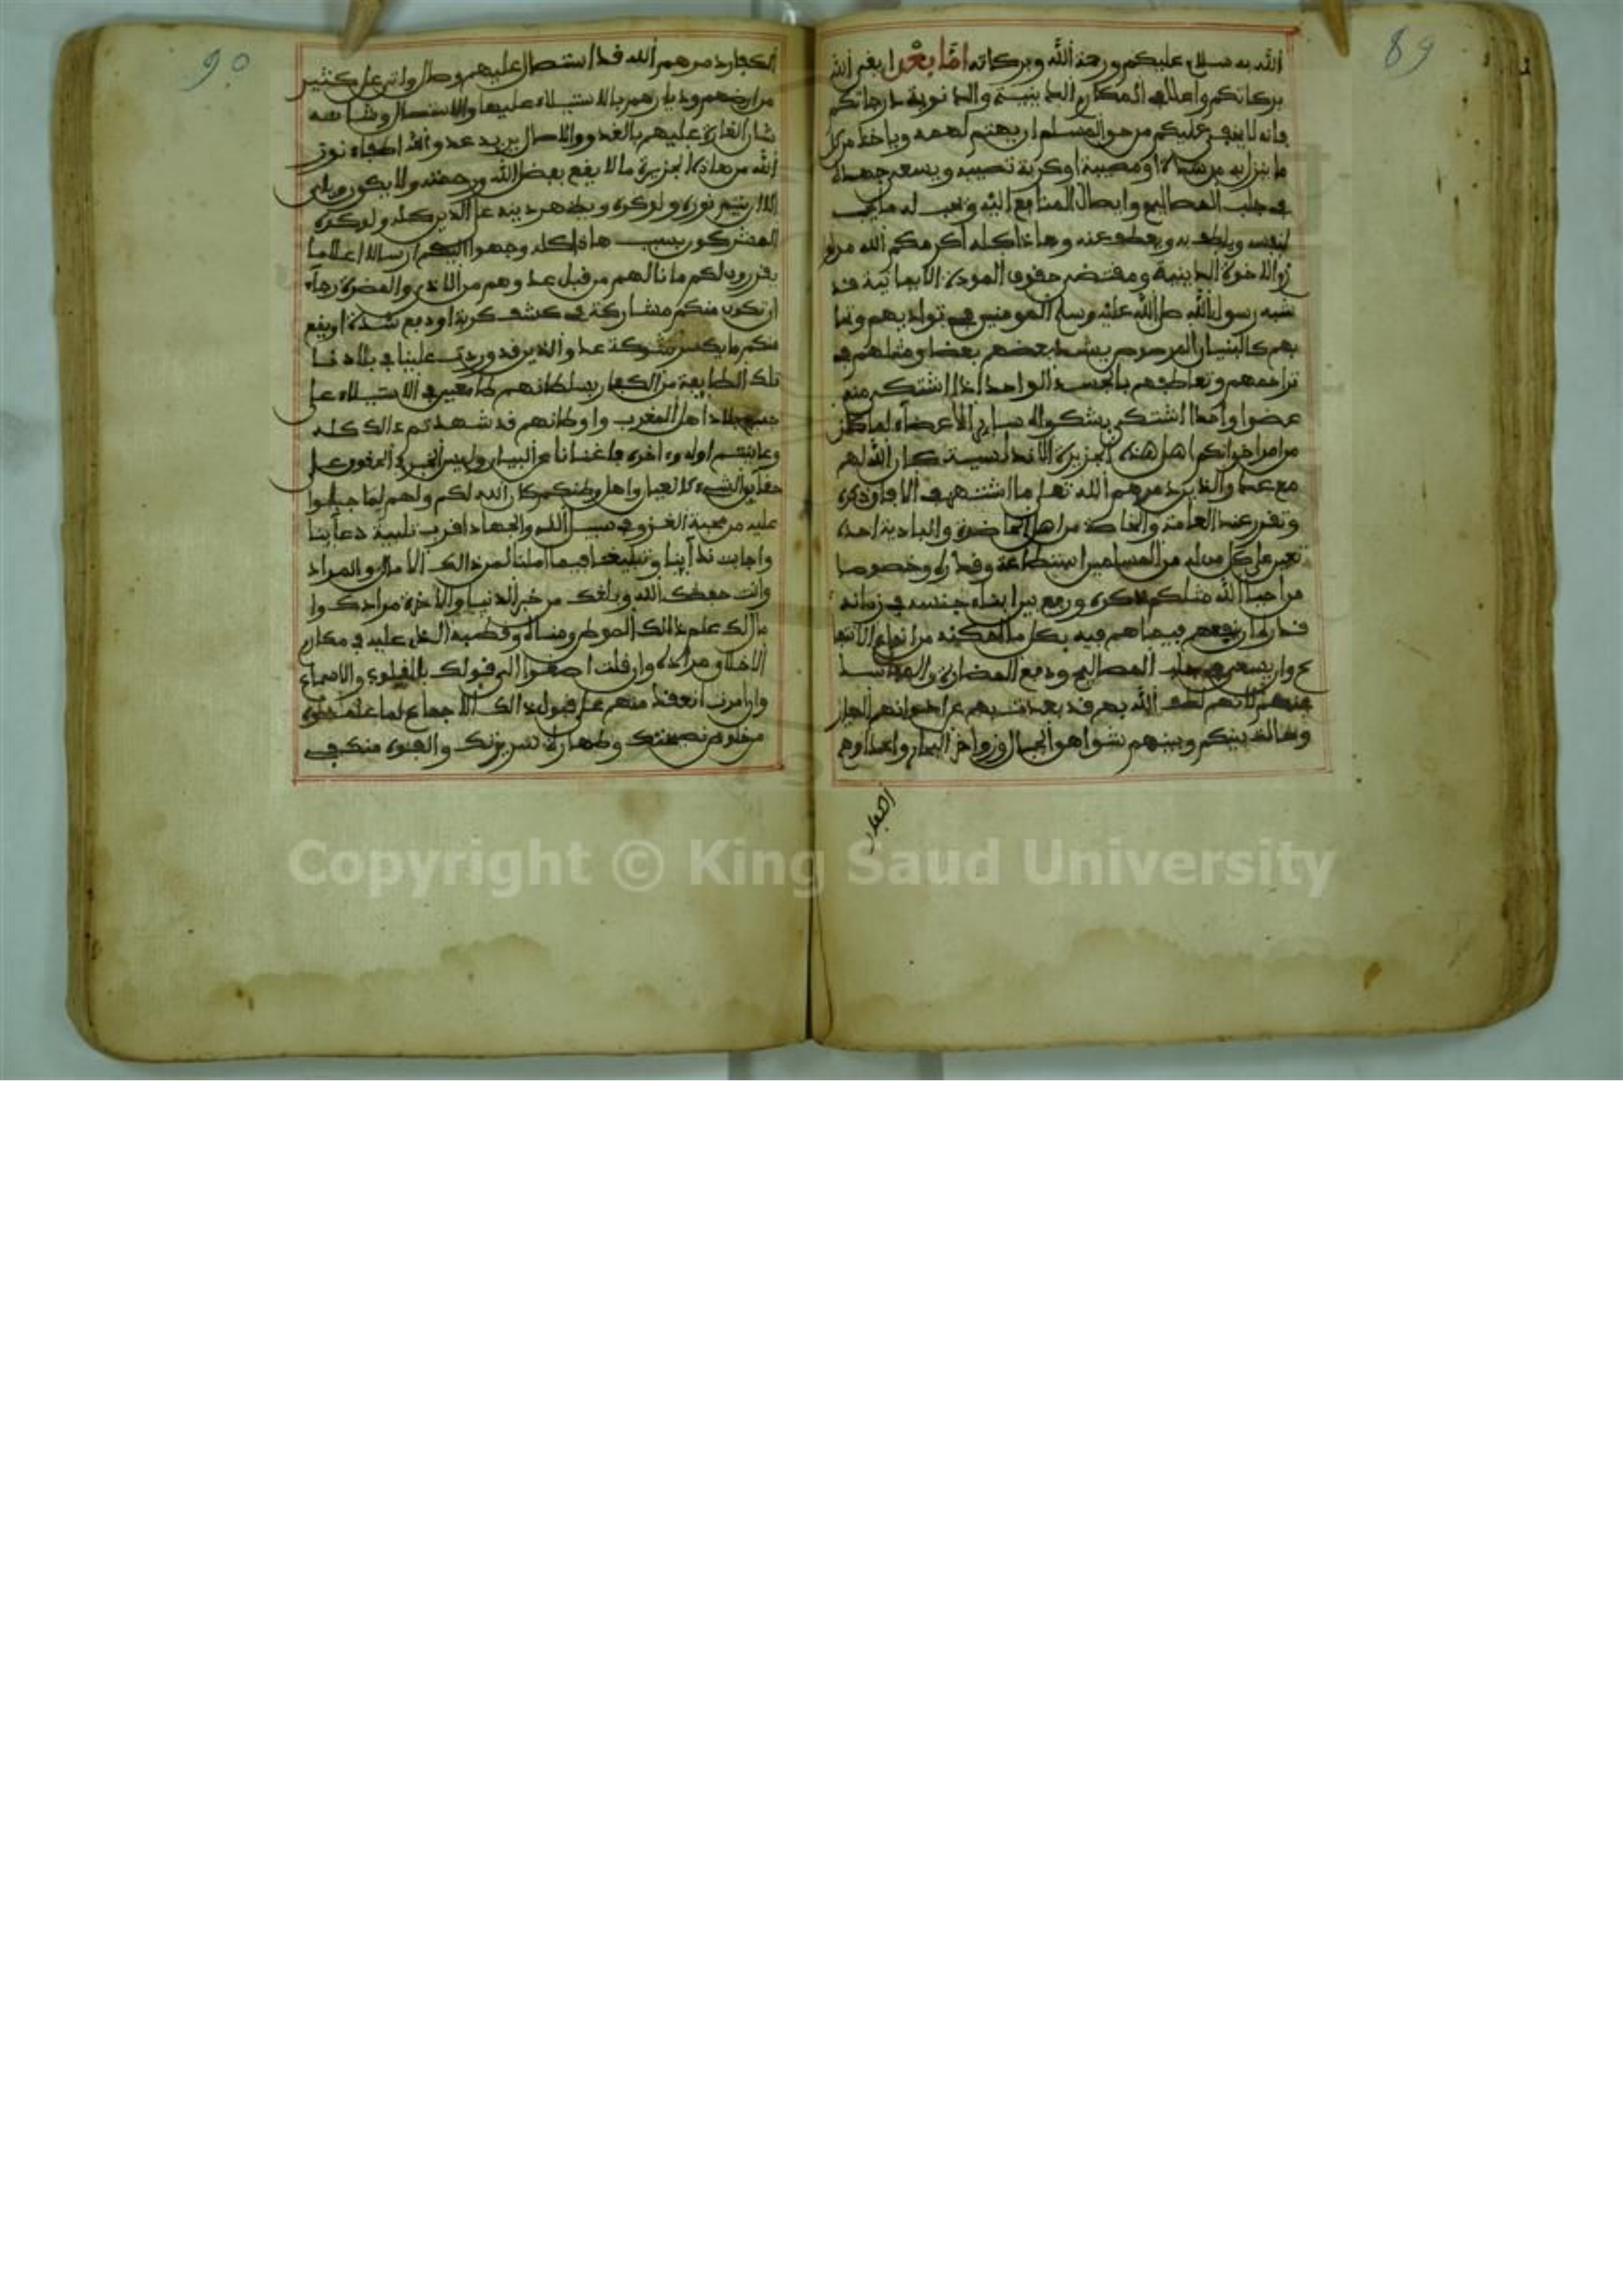 89
الله به سلام عليكم ورحمة الله وبركاته اما بعد
بركاتكم واعلا في المكارم الدينية والدنوية درجاتكم
فانه لا يخفى عليكم من حق المسلم ان يهتم لهمه وياخذ من كل
ما ينزل به من شدة او مصيبة او كربة تصيبه ويسعى جهده
في جلب المصالح وايصال المنافع اليه ويحب له ما يحب
لنفسه ويلطف به ويعطف عنه وهاذا كله اكرمكم الله من
الاخوة الدينية ومقتضى حقوق المودة الايمانية قد
شبه رسول الله صلى الله عليه وسلم المومنين في
بهم كالبنيان المرصوص يشد بعضهم بعضا ومثلهم في
تراحمهم وتعاطفهم بالجسد الواحد اذا اشتكى منه
عضوا واحدا اشتكى بشكواه ساير الاعضاء
من امر اخوانكم اهل هذه الجزيرة الاندلسية كان الله لهم
مع عدو الدين دمرهم الله تعلى ما اشتهر في الافاق ذكره
وتقرر عند العامة والخاصة من اهل الحاضرة والبادية
تعين على كل من المسلمين استطاعة وقدرة وخصوصا
من احيا الله مثلكم ذكره ورفع بين ابناء جنسه في زمانه
قدره ان ينفعهم فيما هم فيه بكل ما امكنه من انواع الانتفا
ع وان يسعى في جلب المصالح ودفع المضار
عنهم لانهم لطف الله بهم قد بعدت بهم عن اخوانهم
وحالت بينكم وبينهم شواهق الجبال وزواخر البحار واعداوهم
الكفار
90
الكفار دمرهم الله قد استصال عليهم وطال واتى على كثير
من ارضهم وديارهم بالاستيلاء عليها والاستصال
شان الغارة عليهم بالغدو والاصال يريد عدو الله اطفاء نور
الله من هاذه الجزيرة ما لا يقع بفضل الله ورحمته ولا يكون ويابى
الله الا ان يتم نوره ولو كره ويظهر دينه على الدين كله ولو كره
المشركون بسبب هاذا كله وجهوا اليكم ارسالا اعلاما
يقررون لكم ما نالهم من قبل عدوهم من الاذى والمضرة رجاء
ان تكون منكم مشاركة في كشف كربة او دفع شدة او يقع
منكم ما يكسر شوكة عدو الدين قد وردت علينا في بلادنا
تلك الطايفة من الكفار بسلطانهم طامعين في الاستيلاء على
جميع بلاد اهل المغرب واوطانهم قد شهدتم ذالك كله
وعاينتم اوله واخره فاغنانا عن البيان وليس الخبر في
حقايق الشيء كالعيان واهل وطنكم كان الله لكم ولهم لما جبلوا
عليه من محبة الغزو في سبيل الله والجهاد اقرب تلبية دعاينا
واجابت نداينا وتبليغنا فيما املنا من ذالك الامال والمراد
وانت حفظك الله وبلغك من خير الدنيا والاخرة مرادك
مالك علم ذالك الموطن ومناله وقطبه الذي عليه في مكارم
الاخلاق مداره وان قلت اصغوا الى قولك بالقلوب والاسماع
وان امرت انعقد منهم على قبول ذالك الاجماع لما علموه
من خلوص نصيحتك وطهارة سريرتك والعبوه منك في
Copyright © King Saud University